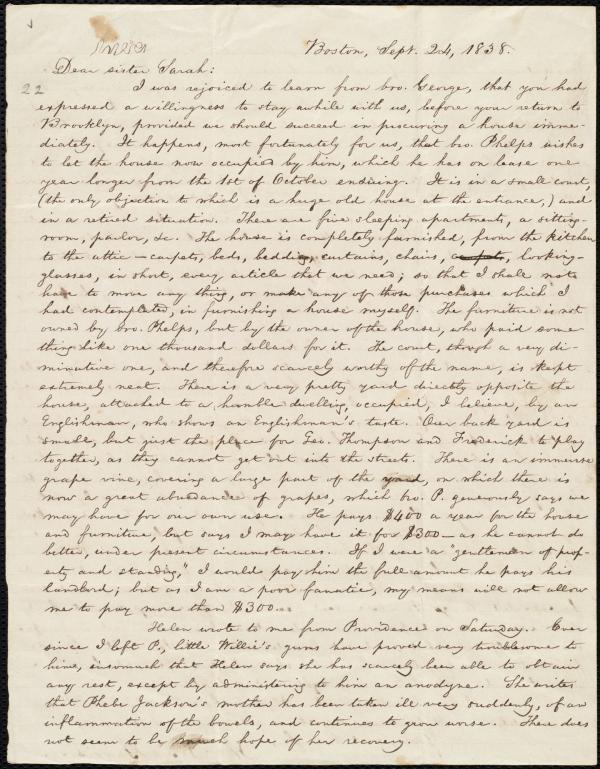 Boston, Sept. 24, 1838.
Dear sister Sarah:
22
I was rejoiced to learn from bro. George, that you had
expressed a willingness to stay awhile with us, before your return to
Brooklyn, provided we should succeed in procuring a house imme-
diately. It happens, most fortunately for us, that bro. Phelps wishes
to let the house now occupied by him, which he has on lease one
year longer from the 1st of October ensuing. It is in a small court,
(the only objection to which is a huge old house at the entrance,) and
in a retired situation. There are five sleeping apartments, a sitting-
room, parlor, &c. The house is completely furnished, from the kitchen
to the attic—carpets, beds, bedding, curtains, chairs, carpets, looking-
glasses, in short, every article that we need; so that I shall not
have to move any thing, or make any of those purchases which I
had contemplated, in furnishing a house myself. The furniture is not
owned by bro. Phelps, but by the owner of the house, who paid some-
thing like one thousand dollars for it. The court, though a very di-
minutive one, and therefore scarcely worthy of the name, is kept
extremely neat. There is a very pretty yard directly opposite the
house, attached to a humble dwelling, occupied, I believe, by an
Englishman, who shows an Englishman's taste. Our back yard is
small, but just the place for Geo. Thompson and Frederick to play
together, as they cannot get out into the streets. There is an immense
grape vine, covering a large part of the yard, on which there is
now a great abundance of grapes, which bro. P. generously says we
may have for our own use. He pays $400 a year for the house
and furniture, but says I may have it for $300—as he cannot do
better, under present circumstances. If I were a "gentleman of prop-
erty and standing," I would pay him the full amount he pays his
landlord; but as I am a poor fanatic, my means will not allow
me to pay more than $300.
Helen wrote to me from Providence on Saturday. Ever
since I left P., little Willie's gums have proved very troublesome to
him, insomuch that Helen says she has scarcely been able to obtain
any rest, except by administering to him an anodyne. She writes
that Phebe Jackson's mother has been taken ill very suddenly, of an
inflammation of the bowels, and continues to grow worse. There does
not seem to be much hope of her recovery.